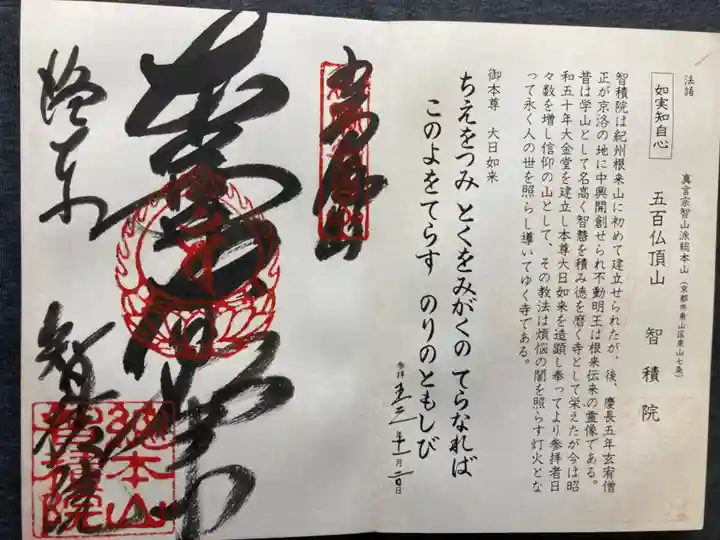 法語
如実知自心
真言宗智山派総本山(京都市東山区東山七条)
五百仏頂山 智積院
智積院は紀州根来山に初めて建立せられたが、後、慶長五年玄宥僧
正が京洛の地に中興開創せられ不動明王は根来伝来の霊像である。
昔は学山として名高く智慧を積み徳を磨く寺として栄えたが今は昭
和五十年大金堂を建立し本尊大日如来を造顕し奉ってより参拝者日
々数を増し信仰の山として、その教法は煩悩の闇を照らす灯火とな
って永く人の世を照らし導いてゆく寺である。
御本尊 大日如来
ちえをつみ とくをみがくの てらなれば
このよをてらす のりのともしび
参拝 年 月 日
智積院
総本山
智積院